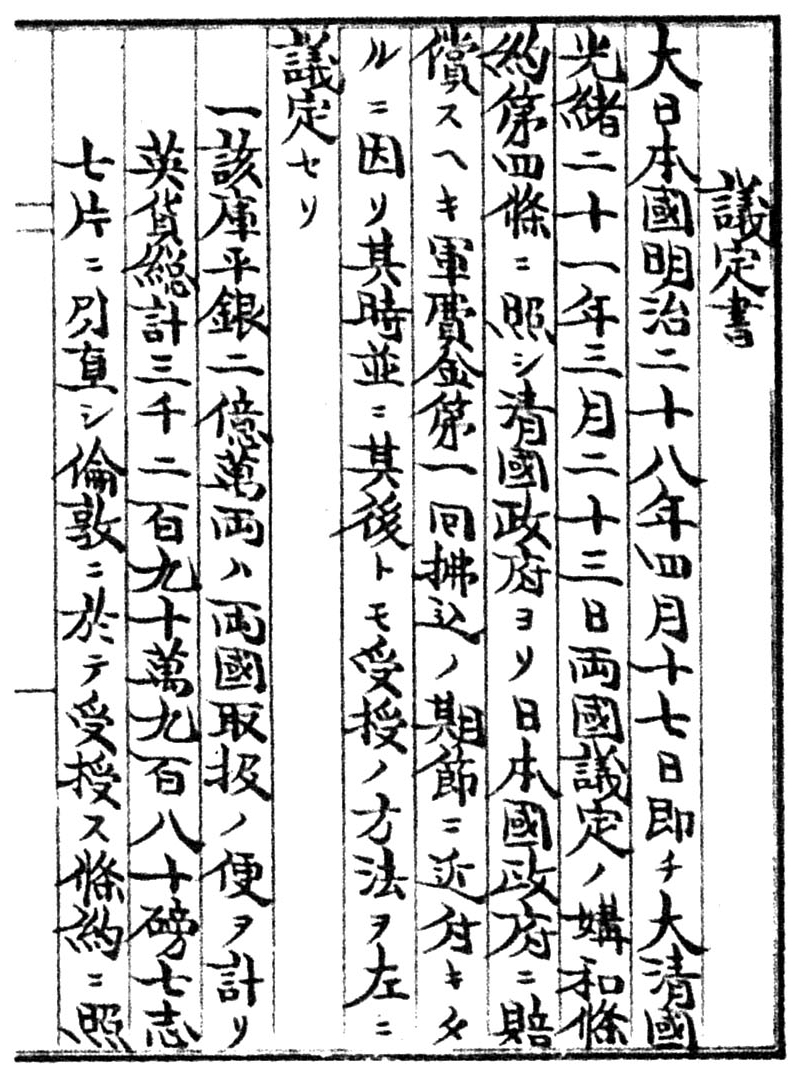 議定書
大日本國明治二十八年四月十七日即チ大清國
光緒二十一年三月二十三日両國議定ノ媾和條
約第四條ニ照シ清國政府ヨリ日本國政府ニ賠
償スヘキ軍費金第一囘拂込ノ期節ニ近付キタ
ルニ因リ其時並ニ其後トモ受授ノ方法ヲ左ニ
議定セリ
一該庫平銀二億萬両ハ両國取扱ノ便ヲ計リ
英貨総計三千二百九十萬九百八十磅七志
七片ニ引直シ倫敦ニ於テ受授ス條約ニ照